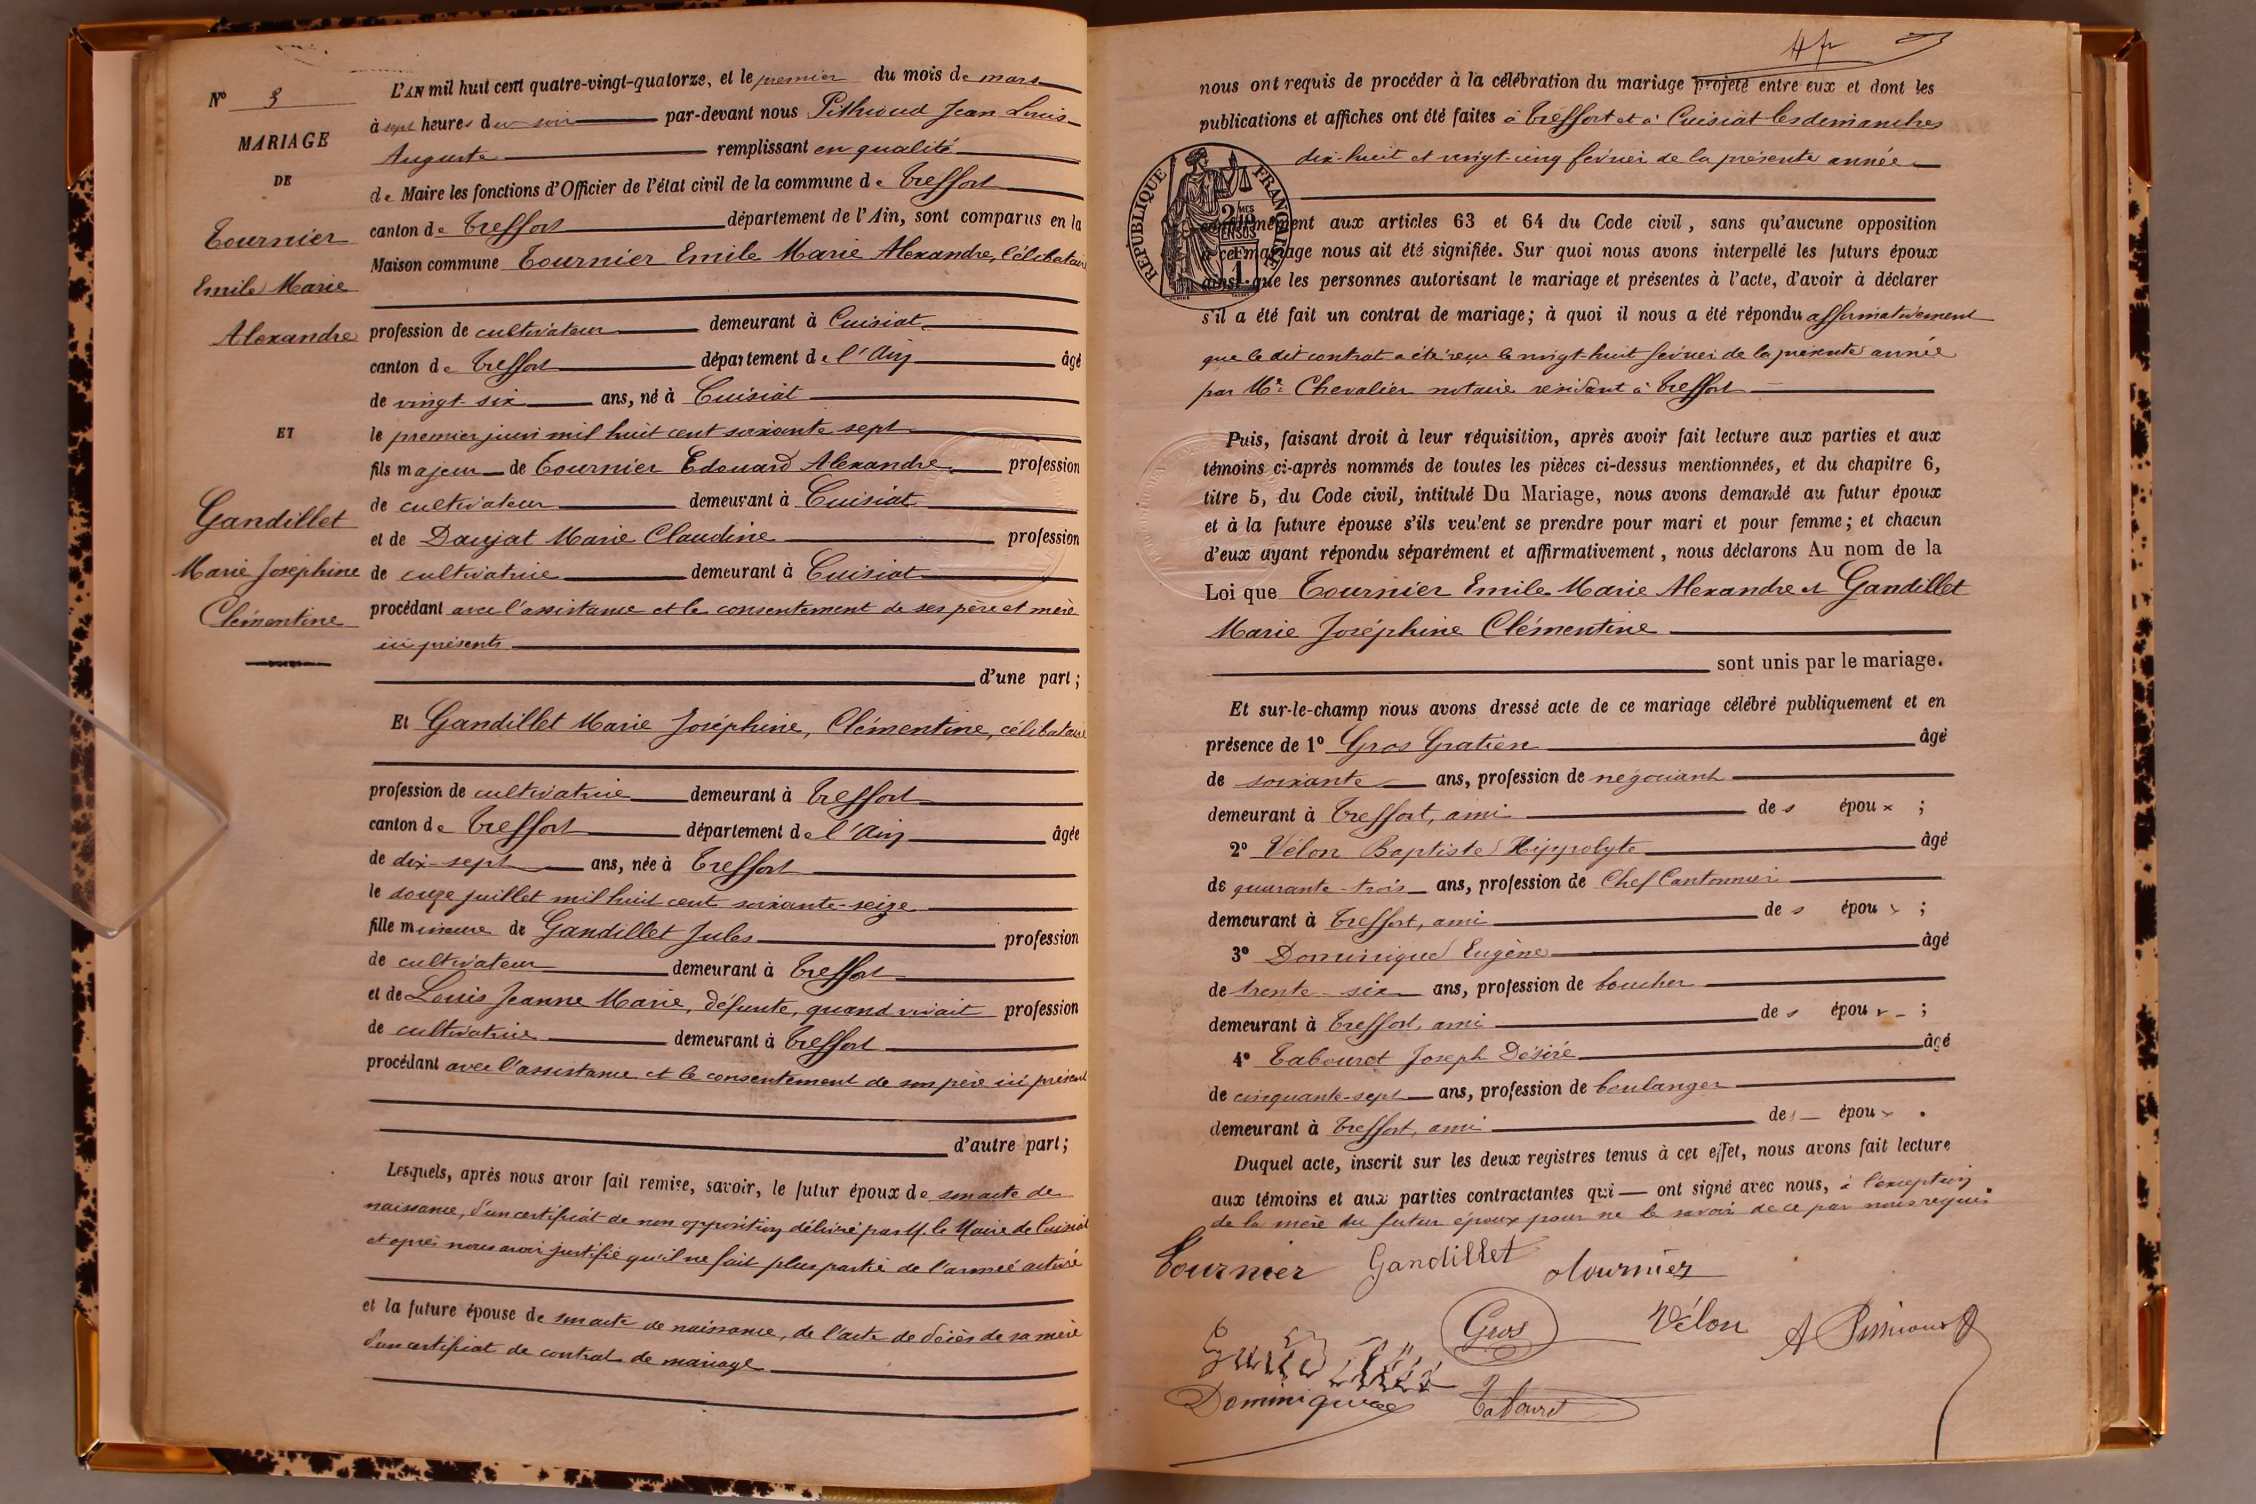 N° 3
MARIAGE
DE
Tournier
Emile Marie
Alexandre
ET
Gandillet
Marie Joséphine
Clémentine
L'AN mil huit cent quatre-vingt-quatorze, et le premier du mois de mars
à sept heures du soir par-devant nous Pithioud Jean Louis
Auguste remplissant en qualité
de Maire les fonctions d'Officier de l'état civil de la commune de Treffort
canton de Treffort département de l'Ain, sont comparus en la
Maison commune Tournier Emile Marie Alexandre, célibataire
profession de cultivateur demeurant à Cuisiat
canton de Treffort département de l'Ain âgé
de vingt-six ans, né à Cuisiat
le premier juin mil huit cent soixante sept
fils majeur de Tournier Edouard Alexandre profession
de cultivateur demeurant à Cuisiat
et de Daujat Marie Claudine profession
de cultivatrice demeurant à Cuisiat
procédant avec l'assistance et le consentement de ses père et mère
ici présents
d'une part ;
Et Gandillet Marie Joséphine, Clémentine, célibataire
profession de cultivatrice demeurant à Treffort
canton de Treffort département de l'Ain âgée
de dix-sept ans, née à Treffort
le douze juillet mil huit cent soixante-seize
fille mineure de Gandillet Jules profession
de cultivateur demeurant à Treffort
et de Louis Jeanne Marie, défunte, quand vivait profession
de cultivatrice demeurant à Treffort
procédant avec l'assistance et le consentement de son père ici présent
d'autre part ;
Lesquels, après nous avoir fait remise, savoir, le futur époux de son acte de
naissance, d'un certificat de non opposition délivré par M. le Maire de Cuisiat
et après nous avoir justifié qu'il ne fait plus partie de l'armée active
et la future épouse de son acte de naissance, de l'acte de décès de sa mère
d'un certificat de contrat de mariage
4 fr
nous ont requis de procéder à la célébration du mariage projeté entre eux et dont les
publications et affiches ont été faites à Treffort et à Cuisiat les dimanches
dix-huit et vingt-cinq février de la présente année
RÉPUBLIQUE FRANÇAISE
2/10
conformément aux articles 63 et 64 du Code civil, sans qu'aucune opposition
à ce mariage nous ait été signifiée. Sur quoi nous avons interpellé les futurs époux
ainsi que les personnes autorisant le mariage et présentes à l'acte, d'avoir à déclarer
s'il a été fait un contrat de mariage ; à quoi il nous a été répondu affirmativement
que le dit contrat a été reçu le vingt-huit février de la présente année
par Me Chevalier notaire résidant à Treffort
Puis, faisant droit à leur réquisition, après avoir fait lecture aux parties et aux
témoins ci-après nommés de toutes les pièces ci-dessus mentionnées, et du chapitre 6,
titre 5, du Code civil, intitulé Du Mariage, nous avons demandé au futur époux
et à la future épouse s'ils veulent se prendre pour mari et pour femme ; et chacun
d'eux ayant répondu séparément et affirmativement, nous déclarons Au nom de la
Loi que Tournier Emile Marie Alexandre et Gandillet
Marie Joséphine Clémentine
sont unis par le mariage.
Et sur-le-champ nous avons dressé acte de ce mariage célébré publiquement et en
présence de 1° Gros Gratien âgé
de soixante ans, profession de négociant
demeurant à Treffort, ami des époux ;
2° Vélon Baptiste Hippolyte âgé
de quarante-trois ans, profession de Chef Cantonnier
demeurant à Treffort, ami des époux ;
3° Dominique Eugène âgé
de trente-six ans, profession de boucher
demeurant à Treffort, ami des époux ;
4° Tabouret Joseph Désiré âgé
de cinquante-sept ans, profession de boulanger
demeurant à Treffort, ami des époux .
Duquel acte, inscrit sur les deux registres tenus à cet effet, nous avons fait lecture
aux témoins et aux parties contractantes qui ont signé avec nous, à l'exception
de la mère du futur époux pour ne le savoir de ce par nous requis.
Tournier Gandillet Tournier
Gros Vélon
Dominique Tabouret